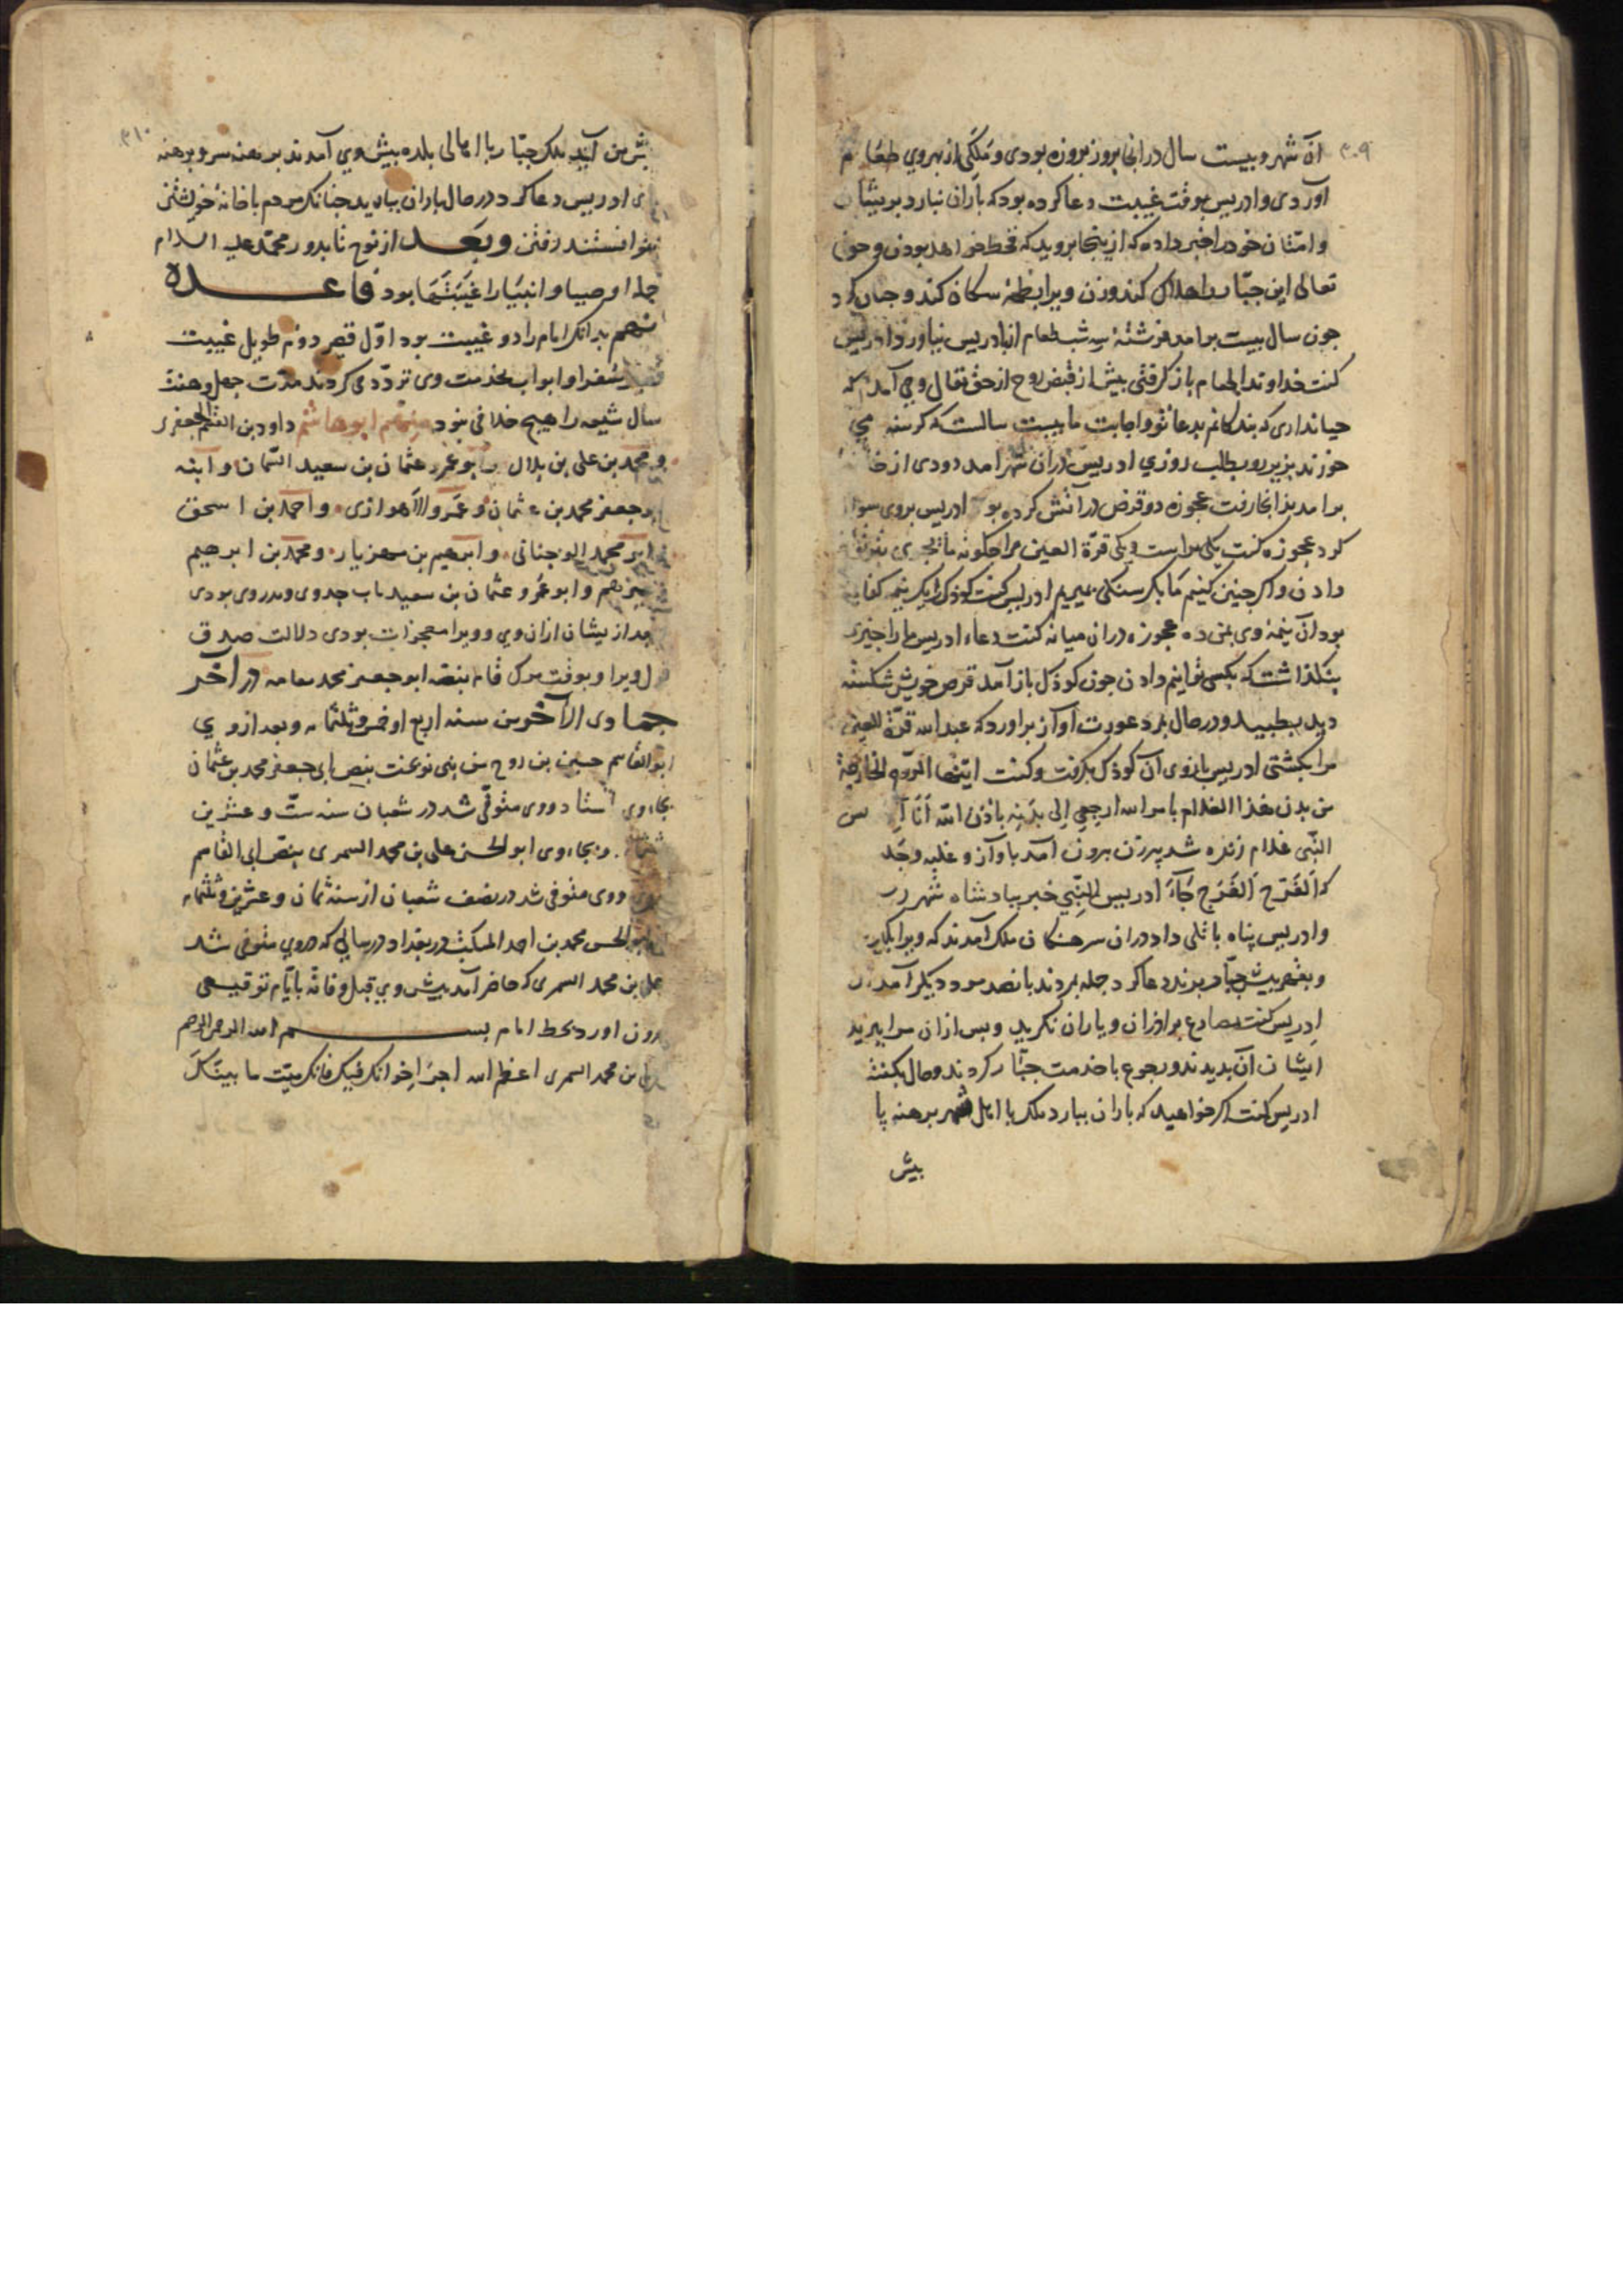 ۳۰۹
آن شهر و بیست سال در انجا بروز بروزه بودی و ملکی از بهر وی طعام
آوردی و ادریس بوقت غیبت دعا کرده بود که باران نبارد بریشان
و امتان خود را خبر داده که ازینجا بروید که قحط خواهد بودن و حق
تعالی این جبار را هلاک کند وزن ویرا طعمه سکان کند و جنان کرد
جون سال بیست برامد فرشته سه شب طعام ادریس نیاورد ادریس
کفت خداوندا طعام باز کرفتی بیش از قبض روح از حق تعالی وحی آمد که
بندکانم بدعا تو واجابت ما بیست سالست که کرسنه می
بزیر رو بطلب روزی ادریس دران شهر امد دودی از
برامد بذانجا رفت عجوزه دو قرص در آتش کرده بو ادریس بروی سوال
کرد عجوزه کفت یکی مراست و یکی قرة العین مرا جکونه
دادن واکر جنین کنیم ما بکرسنکی بمیریم ادریس کفت کوذک را یک نیمه کفایت
بود آن نیمهٔ وی بمن ده عجوزه دران میانه کفت دعاء ادریس ما را جیزی
بنکذاشت که بکسی توانیم دادن جون کوذک باز آمد قرص خویش شکسته
دید بطبید و در حال بمرد عورت آواز براورد که عبد الله قرة العین
مرا بکشتی ادریس بازوی آن کوذک بکرفت و کفت ایتها الروح الخارجة
من بدن هذا الغلام بامر الله ارجعی الی بدنه باذن الله انا ا س
النبی غلام زنده شد بیرزن برون آمد باواز و غلبه وجد
که الفرح الفرج جاء ادریس النبی خبر ببادشاه شهر
وادریس بناه با تلی داد دران سرهنکان ملک آمدند که ویرا
و بقهر بیش جبار برند دعا کرد جمله بمردند بانصد مرد دیکر آمدند
ادریس کفت مصارع برادران و یاران نکرید وبس ازان مرا ببرید
ایشان آن بدیدند و رجوع با خدمت جبار کردند و حال بکفتند
ادریس کفت اکر خواهید که باران ببارد ملک با اهل شهر برهنه پا
بیش
۳۱۰
بیش من آید ملک جبار با اهالی بلده بیش وی آمدند برهنه سر و برهنه
ادریس دعا کرد در حال باران بارید جنانک مردم با خانهٔ خویشتن
نتوانستند رفتن وبعد از نوح تا بدور محمد علیه السلام
جمله اوصیا و انبیا را غیبتها بود قاعده
نهم بدانک امام را دو غیبت بود اول قصیر دوم طویل غیبت
قصیر سفرا و ابواب بخدمت وی تردد می کردند مدت جهل و هفت
سال شیعه را هیچ خلافی نبود منهم ابو هاشم داود بن القسم الجعفری
و محمد بن علی بن بلال و ابو عمرو عثمان بن سعید السمان و ابنه
ابو جعفر محمد بن عثمان و عمرو الاهوازی و احمد بن اسحق
و ابو محمد الوجنانی و ابرهیم بن مهزیار و محمد بن ابرهیم
وابو عمرو عثمان بن سعید باب جد وی و بدر وی بودی
بعد ازیشان ازان وی و ویرا معجزات بودی دلالت صدق
قول ویرا و بوقت مرک قام بنصه ابو جعفر محمد در آخر
جمادی الآخر من سنه اربع او خمس و ثلثمایه و بعد از وی
ابو القاسم حسین بن روح من بنی نوبخت بنص ابی جعفر محمد بن عثمان
بجای وی استاد و وی متوفی شد در شعبان سنه ست و عشرین
و بجاء وی ابو الحسن علی بن محمد السمری بنص ابی القاسم
و وی متوفی شد در نصف شعبان از سنه ثمان و عشرین و ثلثمایه
ابو الحسن محمد بن احمد المکتب در بغداد در سالی که دروی متوفی شد
علی بن محمد السمری که حاضر آمد بیش وی قبل وفاته بایام توقیعی
برون اورد بخط امام بسم الله الرحمن الرحیم
یا علی بن محمد السمری اعظم الله اجر اخوانک فیک فانک میت ما بینک